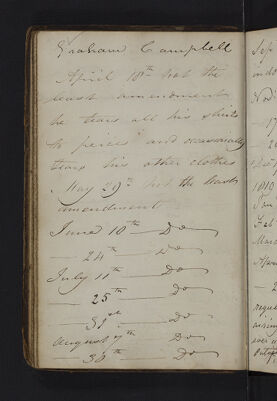 Graham Campbell
April 18th not the
least amendment
he tears all his shirts
to peices and occasionally
tears his other clothes
May 29th not the least
amendment
June 10th — Do
— 24th — Do
July 11th — Do
— 25th — Do
— 31st — Do
August 7th Do
— 30th — Do
Sep
Nov
17
1810
Jan
Feb
Marc